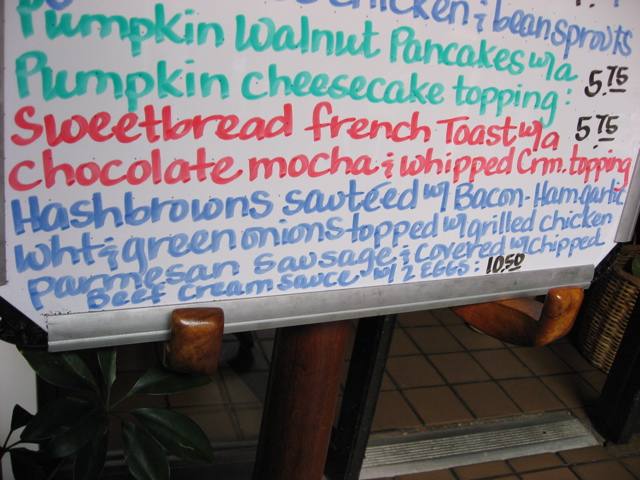 chicken & beansprouts
Pumpkin Walnut Pancakes w/a
Pumpkin cheesecake topping: 5.75
Sweetbread french Toast w/a 5.75
chocolate mocha & whipped Crm. topping
Hashbrowns sautéed w/ Bacon-Ham, garlic
wht & green onions topped w/ grilled chicken
parmesan sausage & covered w/ chipped
Beef cream sauce w/ 2 EGGS: 10.50